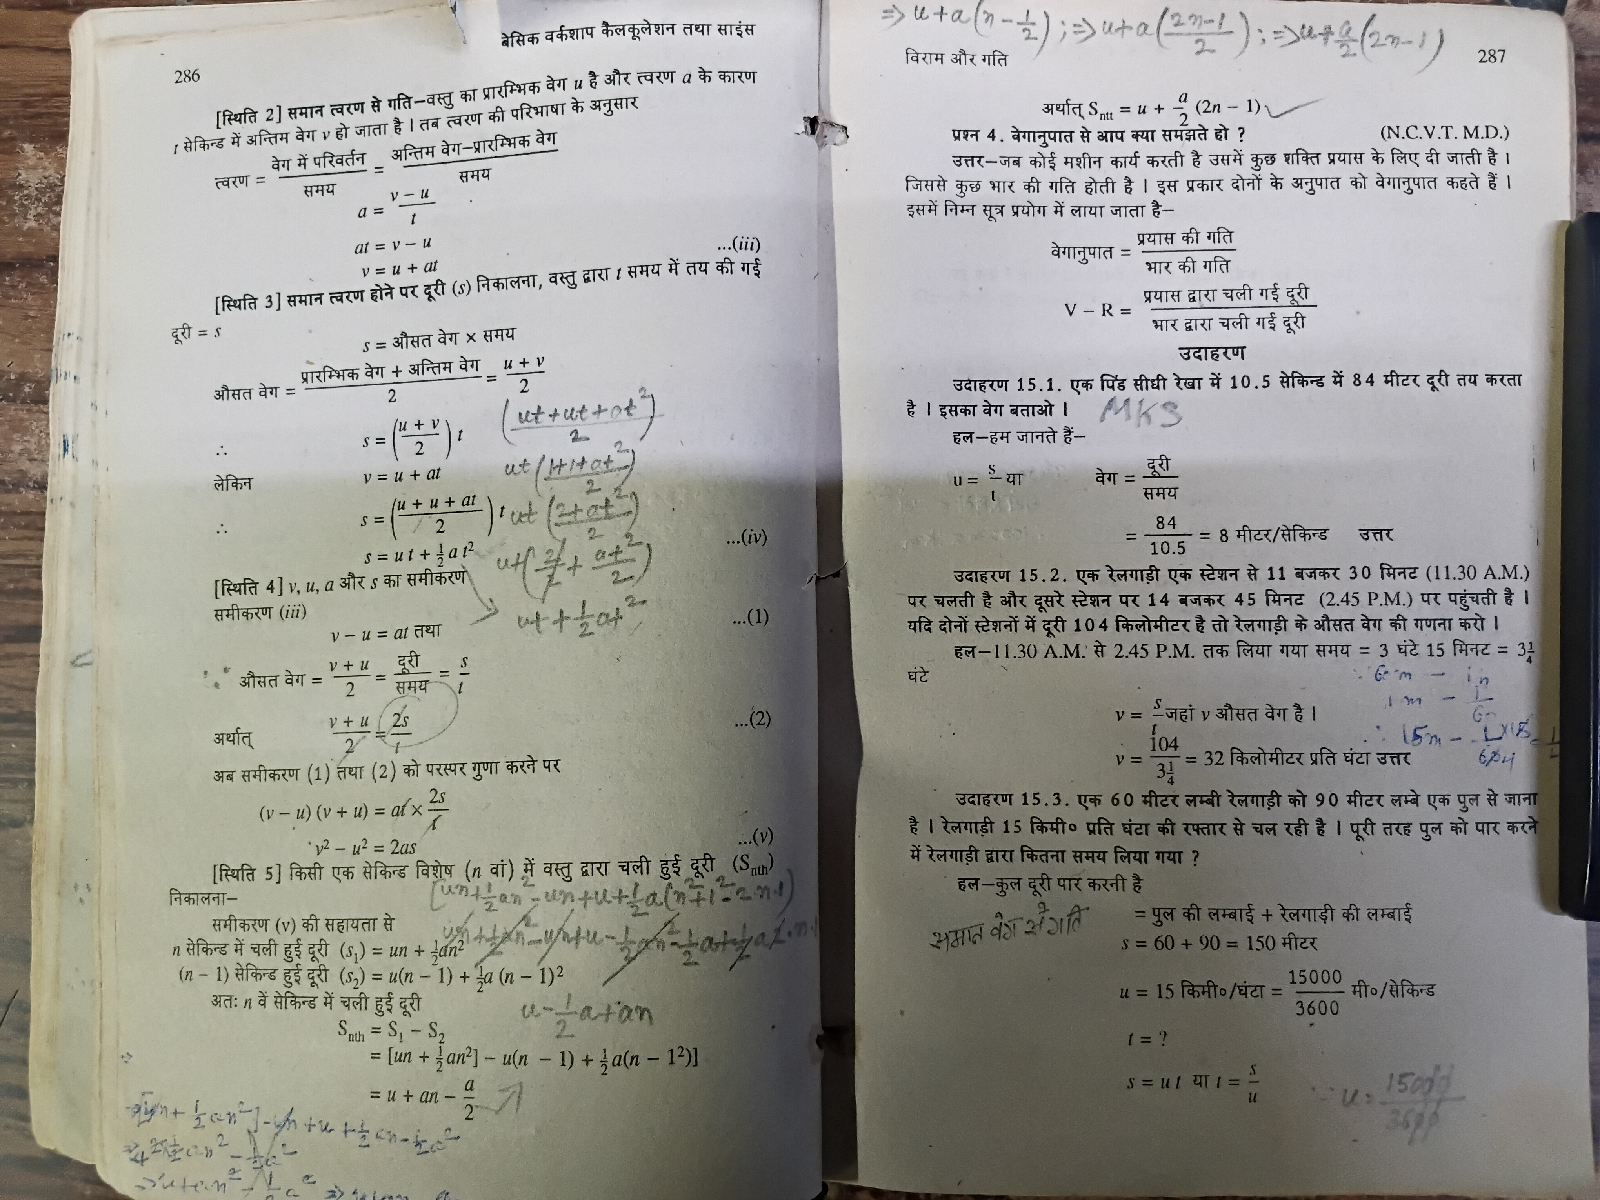 बेसिक वर्कशाप कैलकूलेशन तथा साइंस
286
[स्थिति 2] समान त्वरण से गति–वस्तु का प्रारम्भिक वेग u है और त्वरण a के कारण
t सेकिन्ड में अन्तिम वेग v हो जाता है । तब त्वरण की परिभाषा के अनुसार
त्वरण = वेग में परिवर्तन / समय = अन्तिम वेग–प्रारम्भिक वेग / समय
a = v – u / t
at = v – u
v = u + at ...(iii)
[स्थिति 3] समान त्वरण होने पर दूरी (s) निकालना, वस्तु द्वारा t समय में तय की गई
दूरी = s
s = औसत वेग × समय
औसत वेग = प्रारम्भिक वेग + अन्तिम वेग / 2 = u + v / 2
∴ s = (u + v / 2) t
(ut + ut + at² / 2)
लेकिन v = u + at
ut (1+1+at² / 2)
∴ s = (u + u + at / 2) t
ut (2+at² / 2)
s = u t + ½ a t² ...(iv)
ut (2/2 + at²/2)
[स्थिति 4] v, u, a और s का समीकरण
समीकरण (iii)
ut + ½ at²
v – u = at तथा ...(1)
∴ औसत वेग = v + u / 2 = दूरी / समय = s / t
अर्थात् v + u / 2 = 2s / t ...(2)
अब समीकरण (1) तथा (2) को परस्पर गुणा करने पर
(v – u) (v + u) = at × 2s / t
v² – u² = 2as ...(v)
[स्थिति 5] किसी एक सेकिन्ड विशेष (n वां) में वस्तु द्वारा चली हुई दूरी (Snth)
निकालना–
समीकरण (v) की सहायता से
n सेकिन्ड में चली हुई दूरी (s₁) = un + ½an²
(n – 1) सेकिन्ड हुई दूरी (s₂) = u(n – 1) + ½a (n – 1)²
अतः n वें सेकिन्ड में चली हुई दूरी
u - ½ a + an
Snth = S₁ – S₂
= [un + ½an²] – u(n – 1) + ½a(n – 1²)]
= u + an – a / 2
⇒ u + a(n - ½) ; ⇒ u + a(2n-1 / 2) ; ⇒ u + a/2 (2n-1)
विराम और गति
287
अर्थात् Sntt = u + a/2 (2n – 1)
प्रश्न 4. वेगानुपात से आप क्या समझते हो ? (N.C.V.T. M.D.)
उत्तर–जब कोई मशीन कार्य करती है उसमें कुछ शक्ति प्रयास के लिए दी जाती है ।
जिससे कुछ भार की गति होती है । इस प्रकार दोनों के अनुपात को वेगानुपात कहते हैं ।
इसमें निम्न सूत्र प्रयोग में लाया जाता है–
वेगानुपात = प्रयास की गति / भार की गति
V – R = प्रयास द्वारा चली गई दूरी / भार द्वारा चली गई दूरी
उदाहरण
उदाहरण 15.1. एक पिंड सीधी रेखा में 10.5 सेकिन्ड में 84 मीटर दूरी तय करता
है । इसका वेग बताओ ।
MKS
हल–हम जानते हैं–
u = s / t या वेग = दूरी / समय
= 84 / 10.5 = 8 मीटर/सेकिन्ड उत्तर
उदाहरण 15.2. एक रेलगाड़ी एक स्टेशन से 11 बजकर 30 मिनट (11.30 A.M.)
पर चलती है और दूसरे स्टेशन पर 14 बजकर 45 मिनट (2.45 P.M.) पर पहुंचती है ।
यदि दोनों स्टेशनों में दूरी 104 किलोमीटर है तो रेलगाड़ी के औसत वेग की गणना करो ।
हल–11.30 A.M. से 2.45 P.M. तक लिया गया समय = 3 घंटे 15 मिनट = 3¼
घंटे
v = s / t जहां v औसत वेग है ।
v = 104 / 3¼ = 32 किलोमीटर प्रति घंटा उत्तर
उदाहरण 15.3. एक 60 मीटर लम्बी रेलगाड़ी को 90 मीटर लम्बे एक पुल से जाना
है । रेलगाड़ी 15 किमी० प्रति घंटा की रफ्तार से चल रही है । पूरी तरह पुल को पार करने
में रेलगाड़ी द्वारा कितना समय लिया गया ?
हल–कुल दूरी पार करनी है
= पुल की लम्बाई + रेलगाड़ी की लम्बाई
समान वेग से गति
s = 60 + 90 = 150 मीटर
u = 15 किमी०/घंटा = 15000 / 3600 मी०/सेकिन्ड
t = ?
s = u t या t = s / u
u = 15000 / 3600